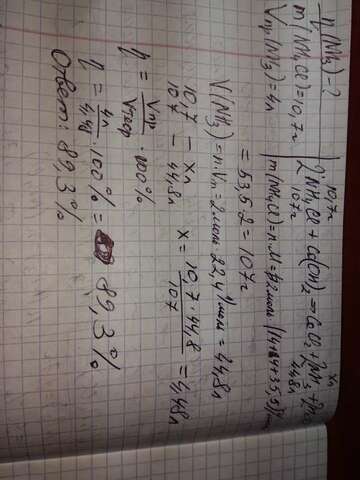 η(NH₃)-?
m(NH₄Cl)=10,7г
Vпр(NH₃)=4л
10,7г xл
2NH₄Cl + Ca(OH)₂ = CaCl₂ + 2NH₃ + 2H₂O
107г 44,8л
m(NH₄Cl)=n·M=2моль·(14+4+35,5)г/моль
=53,5·2=107г
V(NH₃)=n·Vm=2моль·22,4л/моль=44,8л
10,7 – xл
107 – 44,8л
x=10,7·44,8/107=4,48л
η=Vпр/Vтеор·100%
η=4л/4,48·100%=89,3%
Ответ: 89,3%